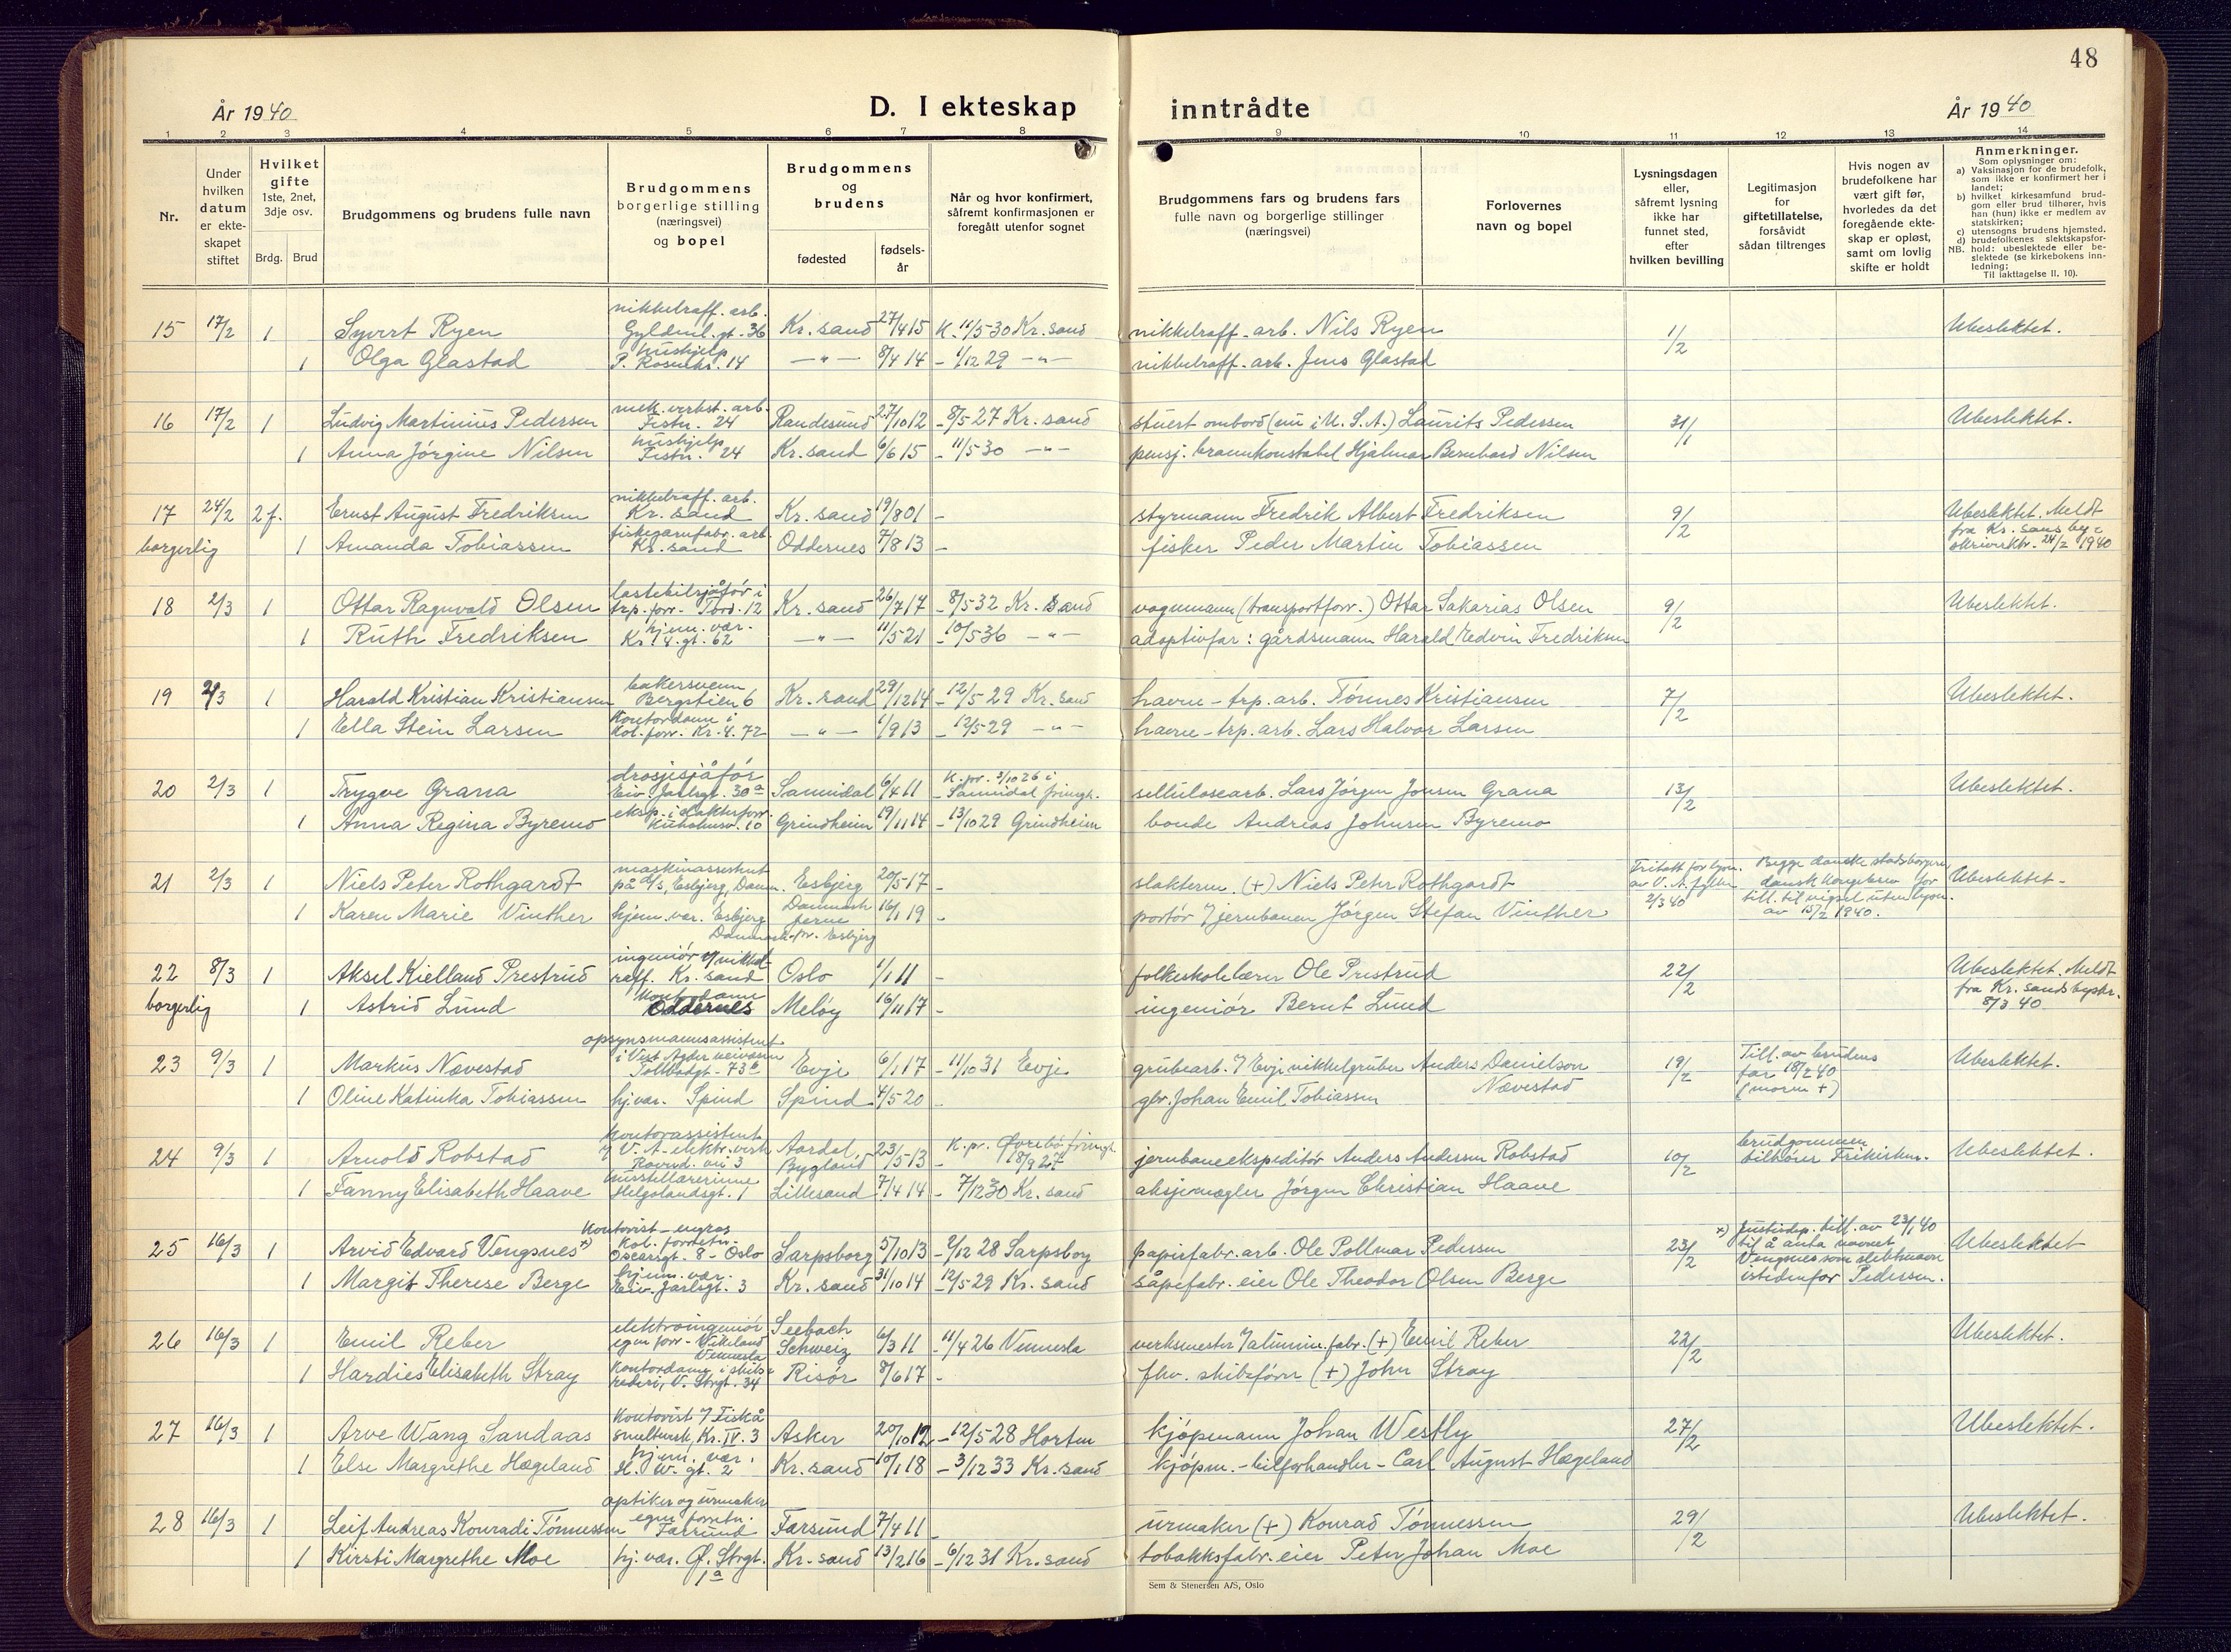 48
År 1940
D. I ekteskap inntrådte
År 1940
1 2 3 4 5 6 7 8 9 10 11 12 13 14
Nr.
Under hvilken datum er ekteskapet stiftet
Hvilket gifte 1ste, 2net, 3dje osv.
Brdg. Brud
Brudgommens og brudens fulle navn
Brudgommens borgerlige stilling (næringsvei) og bopel
Brudgommens og brudens
fødested
fødselsår
Når og hvor konfirmert, såfremt konfirmasjonen er foregått utenfor sognet
Brudgommens fars og brudens fars fulle navn og borgerlige stillinger (næringsvei)
Forlovernes navn og bopel
Lysningsdagen eller, såfremt lysning ikke har funnet sted, efter hvilken bevilling
Legitimasjon for giftetillatelse, forsåvidt sådan tiltrenges
Hvis nogen av brudefolkene har vært gift før, hvorledes da det foregående ekteskap er opløst, samt om lovlig skifte er holdt
Anmerkninger.
Som oplysninger om:
a) Vaksinasjon for de brudefolk, som ikke er konfirmert her i landet;
b) hvilket kirkesamfund brudgom eller brud tilhører, hvis han (hun) ikke er medlem av statskirken;
c) utensogns brudens hjemsted.
d) brudefolkenes slektskapsforhold: ubeslektede eller beslektede (se kirkebokens innledning;
NB. Til iakttagelse II. 10).
15 17/2 1 Syvert Ryen nikkelraff. arb. Gyldenl. gt. 36 Kr. sand 27/4 15 K. 11/5 30 Kr. sand nikkelraff. arb. Nils Ryen 1/2 Ubeslektet.
1 Olga Glastad hushjelp P. Rosenkr. 14 —"— 8/4 14 - 1/12 29 —"— nikkelraff. arb. Jens Glastad
16 17/2 1 Ludvig Martinius Pedersen mek. verkst. arb. Festn. 24 Randesund 27/10 12 - 8/5 27 Kr. sand stuert ombord (nu i U.S.A.) Laurits Pedersen 31/1 Ubeslektet.
1 Anna Jørgine Nilsen hushjelp Festn. 24 Kr. sand 6/6 15 - 11/5 30 —"— pensj. brannkonstabel Hjalmar Bernhard Nilsen
17 24/2 2 f. Ernst August Fredriksen nikkelraff. arb. Kr. sand Kr. sand 19/8 01 - styrmann Fredrik Albert Fredriksen 9/2 Ubeslektet. Meldt fra Kr. sands by= skriverktr. 24/2 1940
borgerlig 1 Amanda Tobiassen fiskegarnfabr. arb. Kr. sand Oddernes 7/8 13 - fisker Peder Martin Tobiassen
18 2/3 1 Ottar Ragnvald Olsen lastebilsjåfør i trp. forr. Tord. 12 Kr. sand 26/7 17 - 8/5 32 Kr. sand vognmann (transportforr.) Ottar Sakarias Olsen 9/2 Ubeslektet.
1 Ruth Fredriksen hjem. vær. Kr. 4. gt. 62 —"— 11/5 21 - 10/5 36 —"— adoptivfar: gårdsmann Harald Edvin Fredriksen
19 2/3 1 Harald Kristian Kristiansen bakersvenn Bergstien 6 Kr. sand 29/12 14 - 12/5 29 Kr. sand havne-trp. arb. Tønnes Kristiansen 7/2 Ubeslektet.
1 Ella Stein Larsen Kontordame i Kol. forr. Kr. 4. 72 —"— 1/9 13 - 12/5 29 —"— havne-trp. arb. Lars Halvor Larsen
20 2/3 1 Trygve Grana drosjesjåfør Eiv. Jarlsgt. 30a Sannidal 6/4 11 K. pr. 3/10 26 i Sannidal frimgh. sellulosearb. Lars Jørgen Jensen Grana 13/2 Ubeslektet.
1 Anna Regina Byremo eksp. i slakterforr. Kuholmsv. 10 Grindheim 19/11 14 - 13/10 29 Grindheim bonde Andreas Johnsen Byremo
21 2/3 1 Niels Peter Rothgardt maskinassistent på a/s, Esbjerg, Danm. Esbjerg 20/5 17 - slakterm. (+) Niels Peter Rothgardt Fritatt for lysn. av V. A. fylke 2/3 40 Begge danske statsborgere dansk kongebrev for till. til vigsel uten lysn. av 15/2 1940. Ubeslektet.
1 Karen Marie Vinther hjem. vær. Esbjerg Danmark Jerne Danmark pr. Esbjerg 16/1 19 - portør v/ jernbanen Jørgen Stefan Vinther
22 8/3 1 Aksel Kielland Prestrud ingeniør v/ nikkelraff. Kr. sand Oslo 1/1 11 - folkeskolelærer Ole Prestrud 22/2 Ubeslektet. Meldt fra Kr. sands byskr. 8/3 40
borgerlig 1 Astrid Lund kontordame Oddernes Meløy 16/11 17 - ingeniør Bernt Lund
23 9/3 1 Markus Nævestad opsynsmannsassistent i Vest Agder veivesen Tollbodgt. 73a Evje 6/1 17 - 11/10 31 Evje grubearb. v/ Evje nikkelgruber Anders Danielson Nævestad 19/2 Till. av brudens far 18/2 40 (moren +) Ubeslektet.
1 Oline Katinka Tobiassen hj. vær. Spind Spind 4/5 20 - gbr. Johan Emil Tobiassen
24 9/3 1 Arnold Robstad kontorassistent v/ V. A. elektr. verk Ravnd. vei 3 Aardal, Bygland 23/5 13 K. pr. Øvrebø frimgh. 18/9 27 jernbaneekspeditør Anders Andersen Robstad 10/2 brudgommen tilhører Frikirken. Ubeslektet.
1 Fanny Elisabeth Haave husstellærerinne Helgolandsgt. 1 Lillesand 7/4 14 - 7/12 30 Kr. sand aksjemægler Jørgen Christian Haave
25 16/3 1 Arvid Edvard Vengsnes x) Kontorist - engros Kol. forretn. Oscarsgt. 8 - Oslo Sarpsborg 5/10 13 - 2/12 28 Sarpsborg papirfabr. arb. Ole Pollmar Pedersen 23/2 x) Justisdep. till. av 23/1 40 til å anta navnet Vengsnes som slektsnavn istedenfor Pedersen. Ubeslektet
1 Margit Therese Berge hjem. vær. Eiv. Jarlsgt. 3 Kr. sand 31/10 14 - 12/5 29 Kr. sand såpefabr. eier Ole Theodor Olsen Berge
26 16/3 1 Emil Reber elektroingeniør egen forr. - Vikeland Vennesla Seebach Schweiz 6/3 11 - 11/4 26 Vennesla verksmester v/ alumin. fabr. (+) Emil Reber 23/2 Ubeslektet.
1 Hardies Elisabeth Stray kontordame i skibsrederi, V. Strgt. 34 Risør 8/6 17 - fhv. skibsfører (+) John Stray
27 16/3 1 Arve Wang Sandaas kontorist v/ Fiskå smelteverk, Kr. IV. 3 Asker 20/10 12 - 12/5 28 Horten kjøpmann Johan Westly 27/2 Ubeslektet.
1 Else Margrethe Hægeland hjem. vær. H. W. gt. 2 Kr. sand 10/1 18 - 3/12 33 Kr. sand kjøpm. - bilforhandler - Carl August Hægeland
28 16/3 1 Leif Andreas Konradi Tønnessen optiker og urmaker egen forretn. Farsund Farsund 7/4 11 - urmaker (+) Konrad Tønnessen 29/2 Ubeslektet.
1 Kirsti Margrethe Moe hj. vær. Ø. Strgt. 1a Kr. sand 13/2 16 - 6/12 31 Kr. sand tobakksfabr. eier Peter Johan Moe
Sem & Stenersen A/S, Oslo